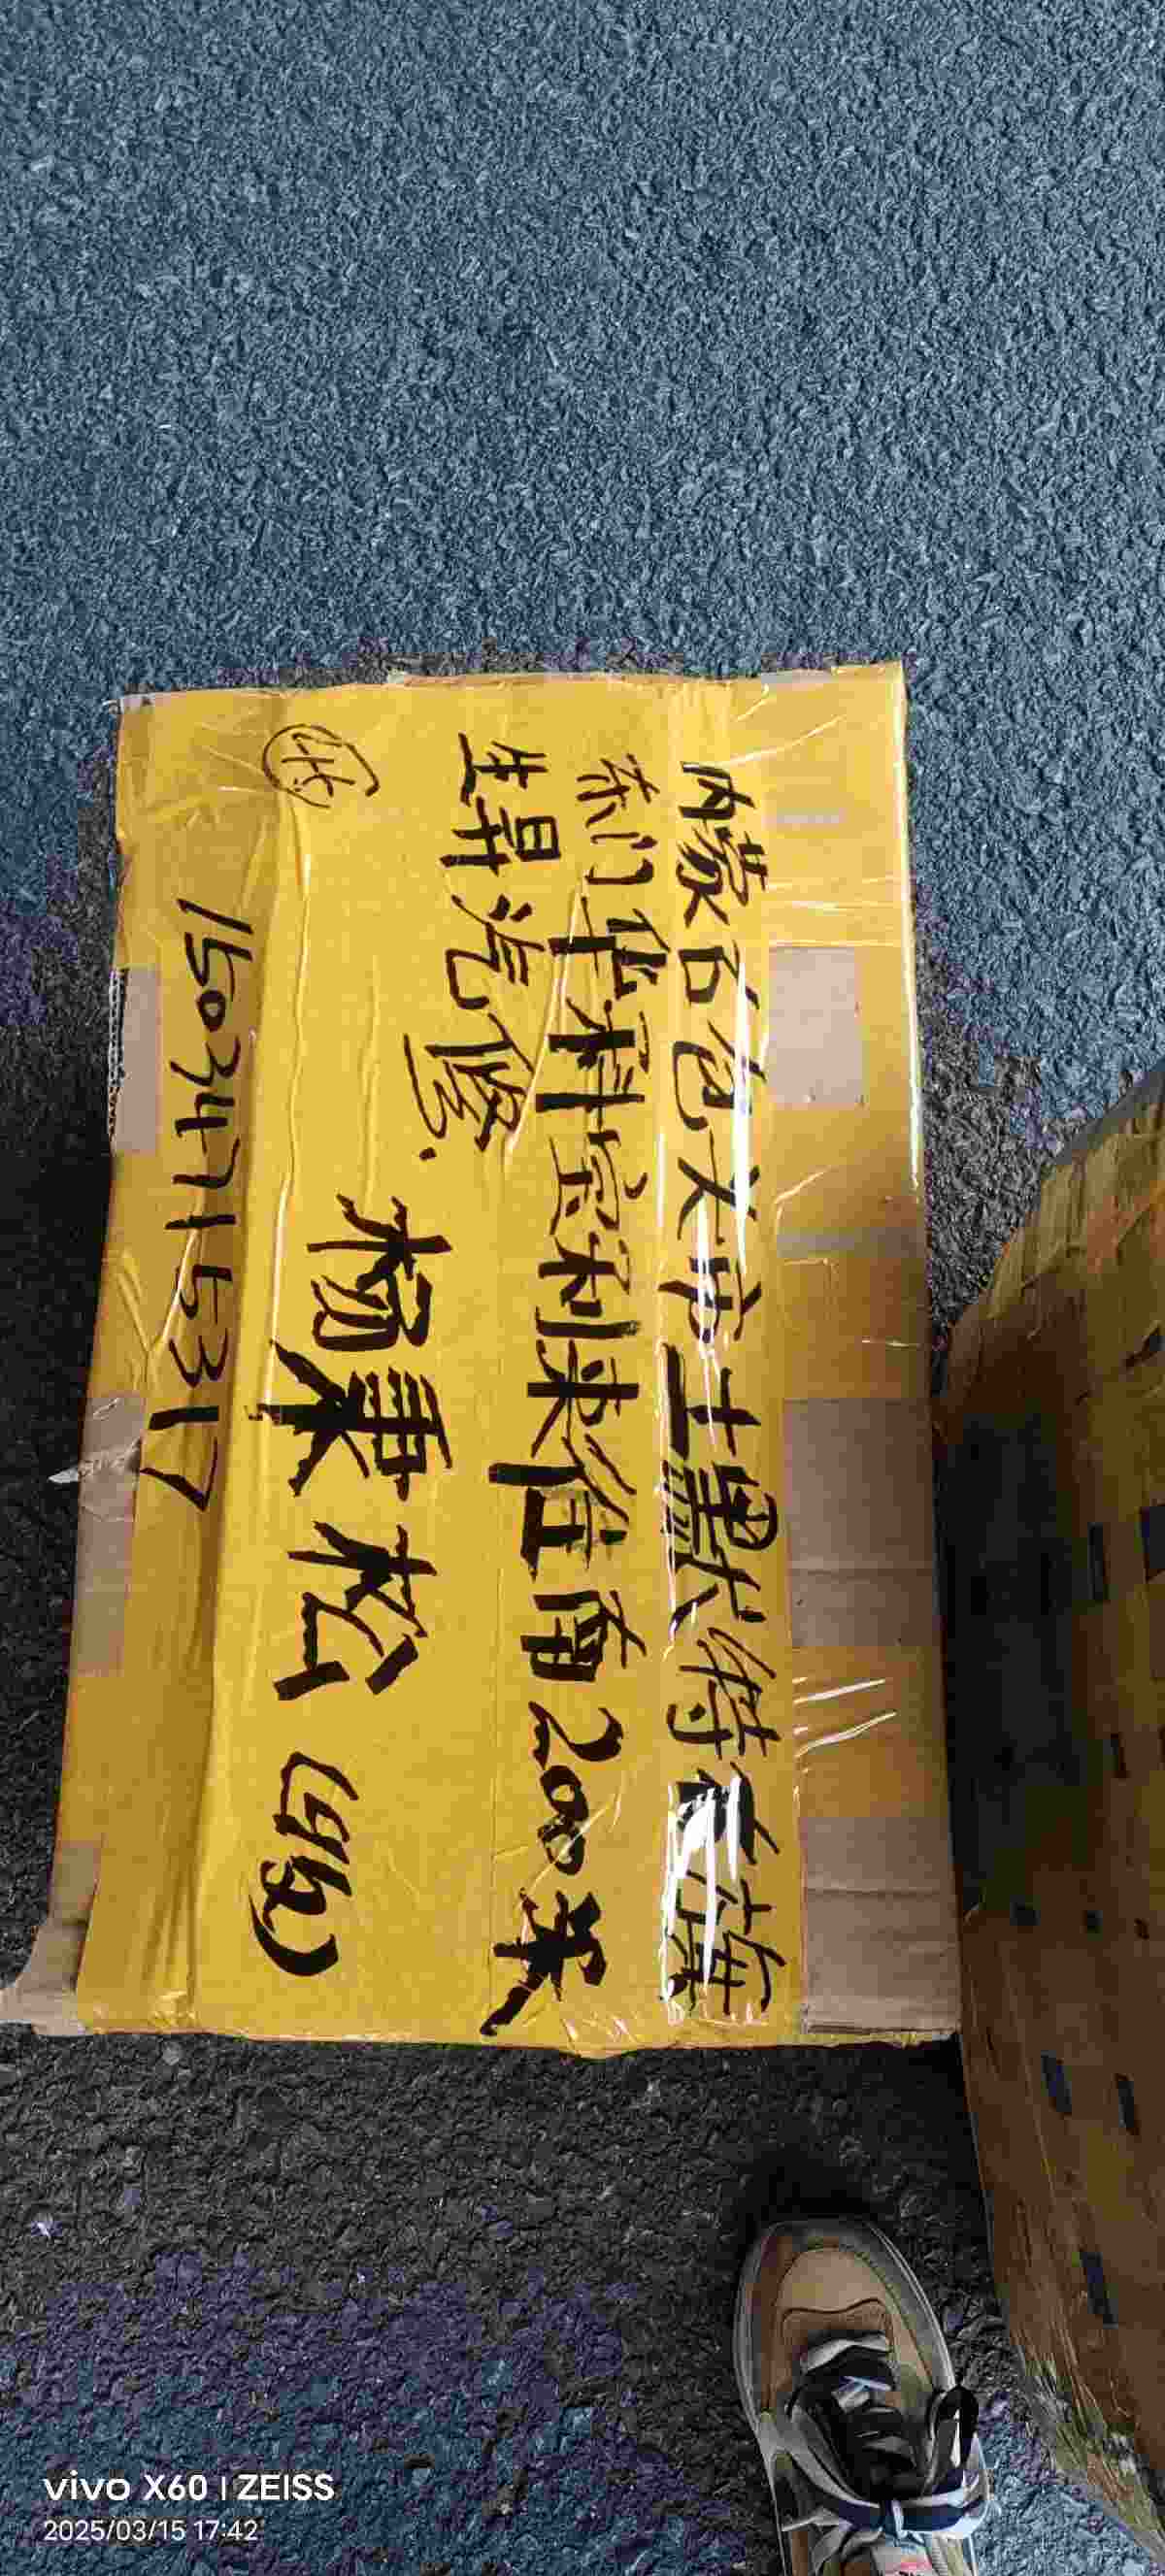 内蒙古包头市土默特右旗
东门华科宝利来往南200米
生昇汽修.
杨秉松 (收)
15034715317
vivo X60 | ZEISS
2025/03/15 17:42